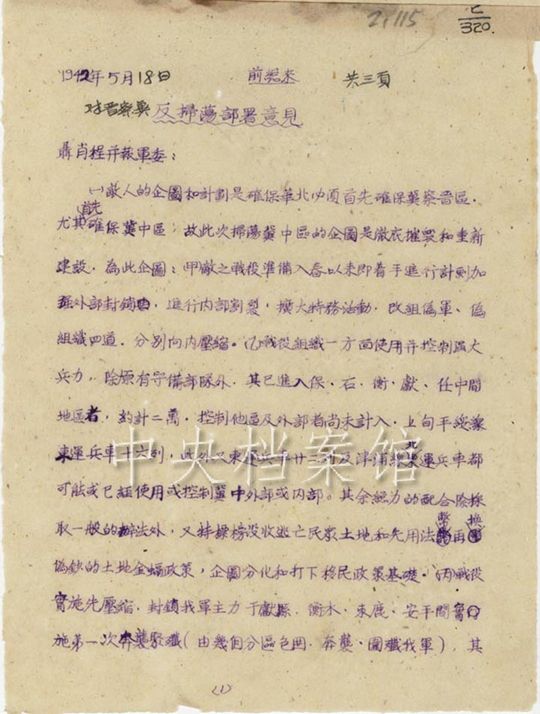 21115
320
1942年5月18日 前總來 共三頁
对晋察冀反掃蕩部署意見
聶肖程并報軍委：
㈠敵人的企圖和計劃是確保華北必須首先確保冀察晋區．
尤其首先確保冀中區；故此次掃蕩冀中區的企圖是徹底摧毀和重新
建設．為此企圖：甲敵之戰役準備入春以來即着手進行計劃加
强外部封鎖，進行内部割裂，擴大特務活動．改組偽軍、偽
組織四道，分別向内壓縮．乙戰役組織一方面使用并控制區大
兵力．除原有守備部隊外，其已進入保、石、衡、獻、任中間
地區者，約計二萬，控制他區及外部者尚未計入，上旬平綏綫
東運兵車十六列，此外又東運兵車廿二列及津浦北運兵車都
可能或已經使用或控制冀中外部或内部。其余總力的配合除採
取一般的辦法外，又特標榜没收逃亡民眾土地和先用法幣再換
偽鈔的土地金融政策，企圖分化和打下移民政策基礎．丙戰役
實施先壓縮．封鎖我軍主力于獻縣．衡水．束鹿．安平間實
施第一次奔襲聚殲（由幾個分區包囲．奔襲．圍殲我軍），其
(1)
中央档案馆